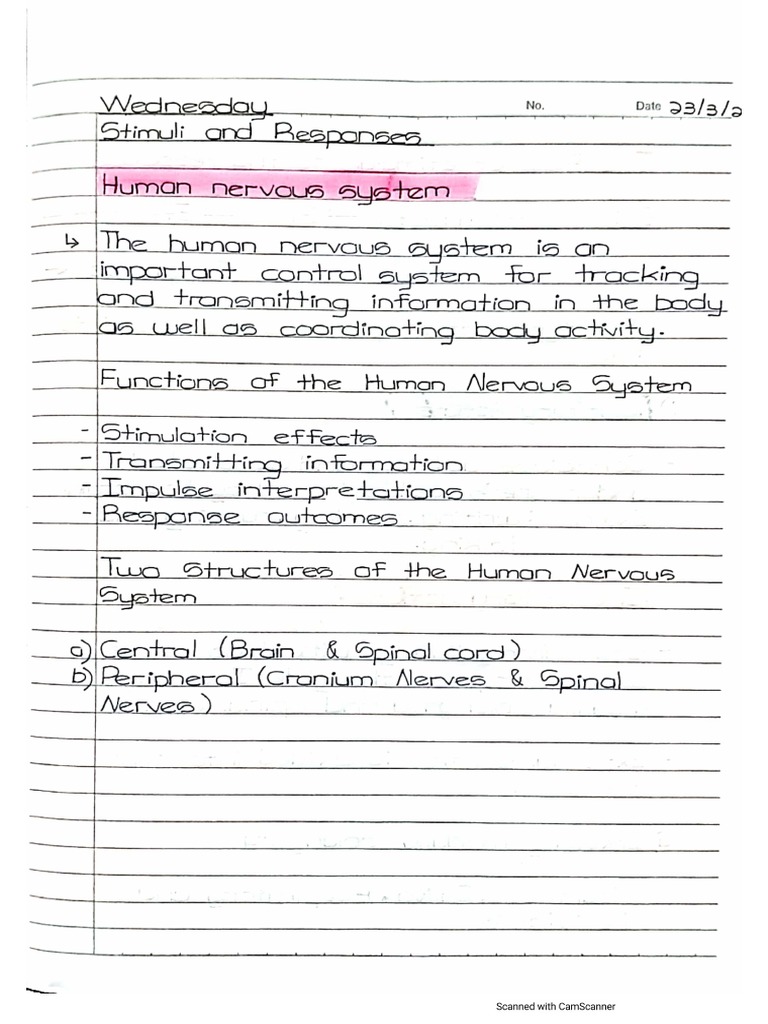 Wednesday No. Date 23/3/2
Stimuli and Responses
Human nervous system
↳ The human nervous system is an
important control system for tracking
and transmitting information in the body
as well as coordinating body activity.
Functions of the Human Nervous System
- Stimulation effects
- Transmitting information
- Impulse interpretations
- Response outcomes
Two Structures of the Human Nervous
System
a) Central (Brain & Spinal cord)
b) Peripheral (Cranium Nerves & Spinal
Nerves)
Scanned with CamScanner